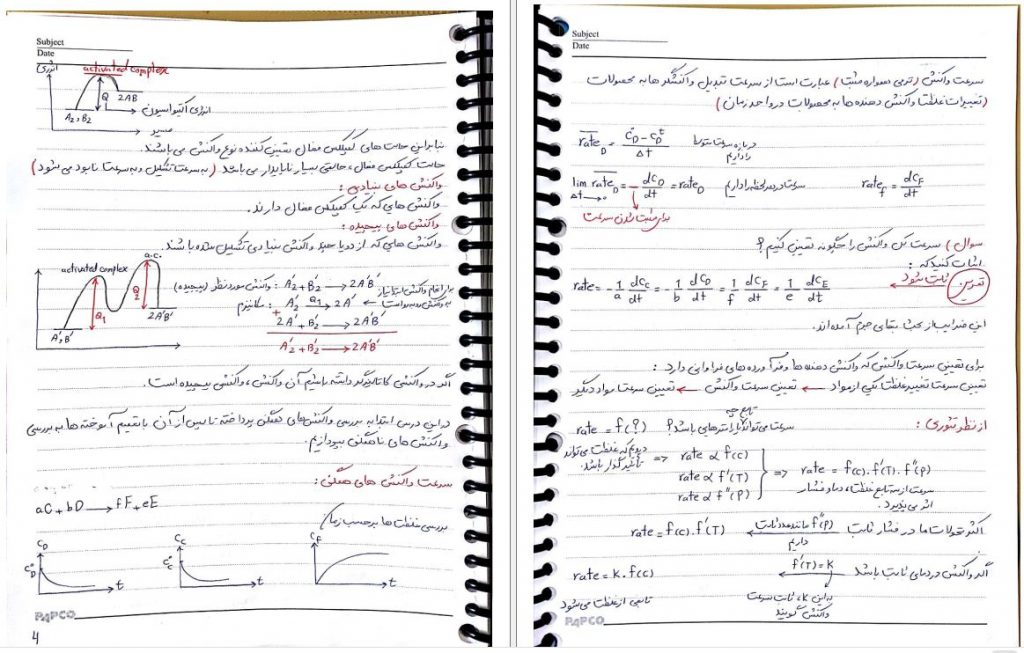 Subject
Date
انرژی
activated complex
Q
2AB
A₂, B₂
انرژی اکتیواسیون
مسیر
بنابراین حالت های کمپلکس فعال تعیین کننده نوع واکنش می باشند.
حالت کمپلکس فعال، حالتی بسیار ناپایدار می باشد (به سرعت تشکیل و به سرعت نابود می شود)
واکنش های بنیادی:
واکنش هایی که تک کمپلکس فعال دارند.
واکنش های پیچیده:
واکنش هایی که از دو یا چند واکنش بنیادی تشکیل شده باشند.
a.c.
activated complex
Q₁
Q₂
A′, B′
2A′B′
واکنش مورد نظر (پیچیده): A′₂ + B′₂ → 2A′B′
مکانیزم: A′₂ Q₁→ 2A′
+ 2A′ + B′₂ → 2A′B′
A′₂ + B′₂ → 2A′B′
اگر در واکنشی کاتالیزگر داشته باشیم آن واکنش، واکنش پیچیده است.
در این درس ابتدا به بررسی واکنش های همگن پرداخته تا پس از آن با تعمیم آموخته ها به بررسی
واکنش های ناهمگن بپردازیم.
سرعت واکنش های همگن:
aC + bD → fF + eE
بررسی غلظت ها برحسب زمان
C_D
C°_D
t
C_C
C°_C
t
C_F
t
PAPCO
4
Subject
Date
سرعت واکنش (ترمی همواره مثبت) عبارت است از سرعت تبدیل واکنشگرها به محصولات
(تغییرات غلظت واکنش دهنده ها به محصولات در واحد زمان)
rate_D = (C°_D - C^t_D) / Δt درباره سرعت متوسط را داریم
lim Δt→0 rate_D = - dC_D/dt = rate_D سرعت در هر لحظه را داریم rate_F = dC_F/dt
برای مثبت شدن سرعت
سوال) سرعت کل واکنش را چگونه تعیین کنیم؟
اثبات کنید که:
تمرین ثابت شود
rate = - 1/a dC_C/dt = - 1/b dC_D/dt = 1/f dC_F/dt = 1/e dC_E/dt
این ضرایب از بحث بقای جرم آمده اند.
برای تعیین سرعت واکنشی که واکنش دهنده ها و فرآورده های فراوانی دارد:
تعیین سرعت تغییر غلظت یکی از مواد ← تعیین سرعت واکنش ← تعیین سرعت مواد دیگر
از نظر تئوری:
rate = f(?) سرعت می تواند تابع چه پارامترهایی باشد؟
دیدیم که غلظت می تواند تأثیرگذار باشد.
rate ∝ f(C)
rate ∝ f′(T)
rate ∝ f″(P)
rate = f(C).f′(T).f″(P)
سرعت از سه تابع غلظت، دما و فشار
اثر می پذیرد.
اکثر تحولات ما در فشار ثابت f″(P) مانند عدد ثابت داریم rate = f(C).f′(T)
اگر واکنش در دمای ثابت باشد f′(T) = k rate = k.f(C)
به این k، ثابت سرعت واکنش گویند
تابعی از غلظت می شود
PAPCO